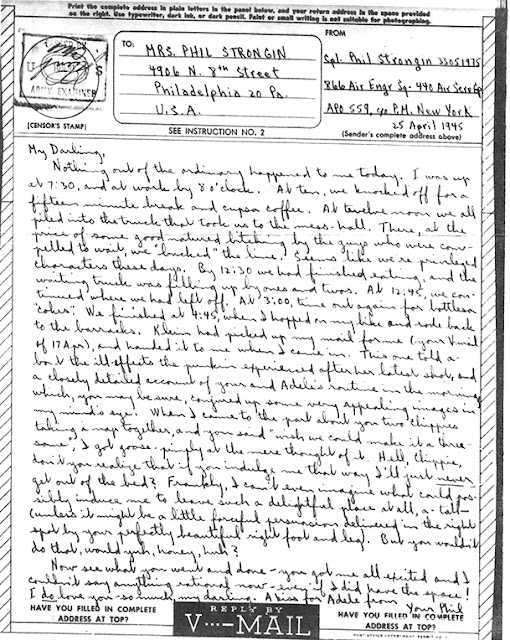 Print the complete address in plain letters in the panel below, and your return address in the space provided
on the right. Use typewriter, dark ink, or dark pencil. Faint or small writing is not suitable for photographing.
TO:
MRS. PHIL STRONGIN
4906 N. 8th Street
Philadelphia 20 Pa.
U.S.A.
FROM
Cpl. Phil Strongin 33051935
866 Air Engr Sq. 440 Air Serv Gp
APO 559, c/o P.M. New York
25 April 1945
(Sender's complete address above)
U S
ARMY EXAMINER
(CENSOR'S STAMP)
SEE INSTRUCTION NO. 2
My Darling,
Nothing out of the ordinary happened to me today. I was up
at 7:30, and at work by 8 o'clock. At ten, we knocked off for a
fifteen minute break and cupsa coffee. At twelve noon we all
piled into the truck that took us to the mess-hall. There, at the
price of some good natured bitching by the guys who were com-
pelled to wait, we "bucked" the line. Seems like we're privileged
characters these days. By 12:30 we had finished eating, and the
waiting truck was filling up by ones and twos. At 12:45, we con-
tinued where we had left off. At 3:00, time out again for bottlesa
"cokes". We finished at 4:45, when I hopped on my bike and rode back
to the barracks. Klein had picked up my mail for me (your V-mail
of 17 Apr), and handed it to me when I came in. This one told a-
bout the ill-effects the punkin experienced after her latest shot, and
a closely detailed account of your and Adele's routine in the morning
which, you may be sure, conjured up some very appealing images in
my mind's eye. When I came to the part about you two "chippies
taking a nap together, and you said "wish we could make it a three-
some", I got goose-pimply at the mere thought of it. Hell, Chippie,
don't you realize that if you indulge me that way I'll just never
get out of the bed? Frankly, I can't even imagine what could pos-
sibly induce me to leave such a delightful place at all, a-tall-
(unless it might be a little forceful persuasion delivered in the right
spot by your perfectly beautiful right foot and leg). But you wouldn't
do that, would yuh, honey, huh?
Now see what you went and done - you got me all excited and I
couldn't say anything rational now - even if I did have the space!
I do love you - so much, my darling. A kiss for Adele from
Your Phil
HAVE YOU FILLED IN COMPLETE
ADDRESS AT TOP?
REPLY BY
V···—MAIL
HAVE YOU FILLED IN COMPLETE
ADDRESS AT TOP?